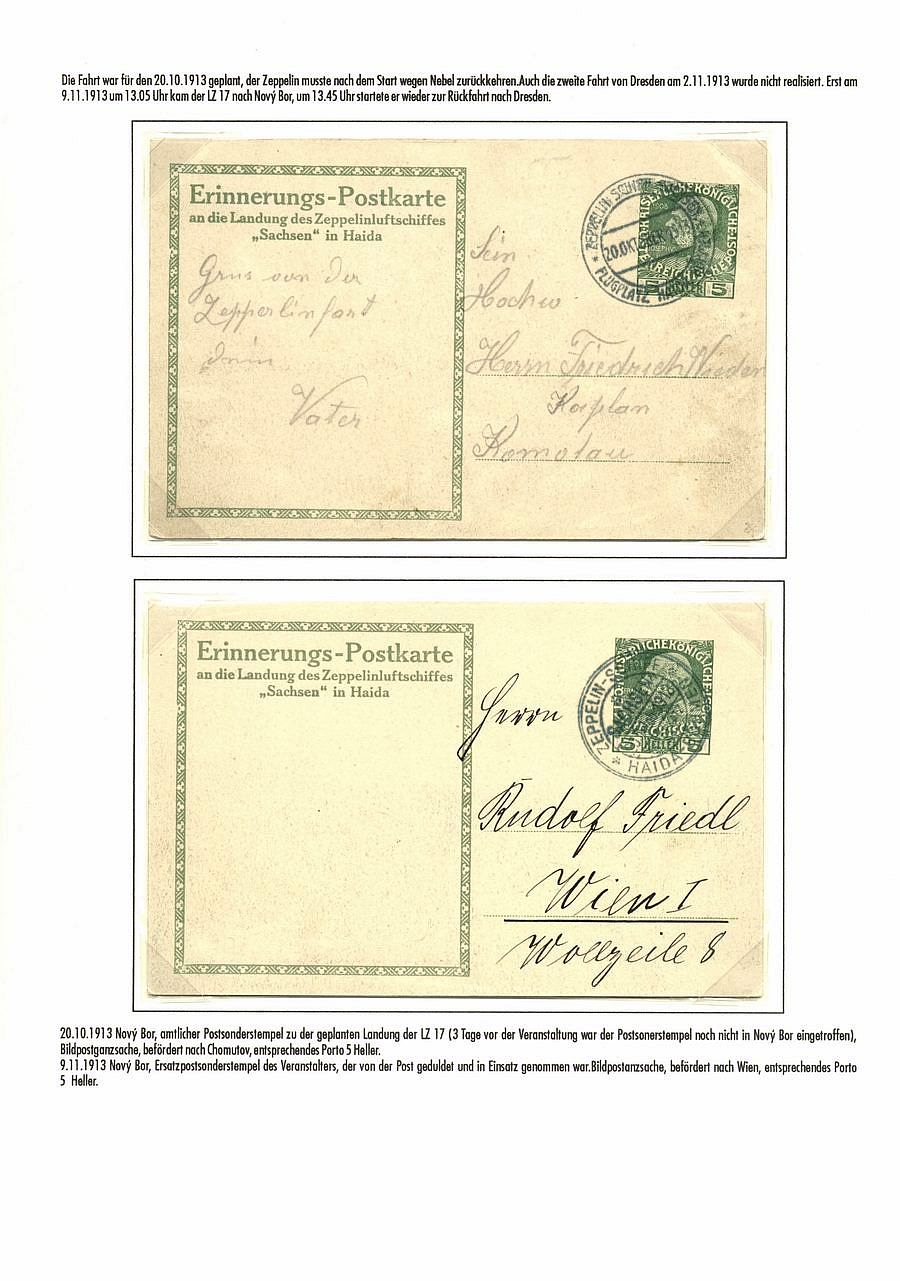 Die Fahrt war für den 20.10.1913 geplant, der Zeppelin musste nach dem Start wegen Nebel zurückkehren.Auch die zweite Fahrt von Dresden am 2.11.1913 wurde nicht realisiert. Erst am
9.11.1913 um 13.05 Uhr kam der LZ 17 nach Nový Bor, um 13.45 Uhr startete er wieder zur Rückfahrt nach Dresden.
Erinnerungs-Postkarte
an die Landung des Zeppelinluftschiffes
„Sachsen" in Haida
Grus von der
Zepperlinfart
Vater
Hochw
Herrn Friedrich
Kaplan
Komotau
20.OKT
FLUGPLATZ
5
Erinnerungs-Postkarte
an die Landung des Zeppelinluftschiffes
„Sachsen" in Haida
Herrn
Rudolf Friedl
Wien I
Wollzeile 8
ZEPPELIN-
* HAIDA
5 HELLER 5
20.10.1913 Nový Bor, amtlicher Postsonderstempel zu der geplanten Landung der LZ 17 (3 Tage vor der Veranstaltung war der Postsonerstempel noch nicht in Nový Bor eingetroffen),
Bildpostganzsache, befördert nach Chomutov, entsprechendes Porto 5 Heller.
9.11.1913 Nový Bor, Ersatzpostsonderstempel des Veranstalters, der von der Post geduldet und in Einsatz genommen war.Bildpostanzsache, befördert nach Wien, entsprechendes Porto
5 Heller.